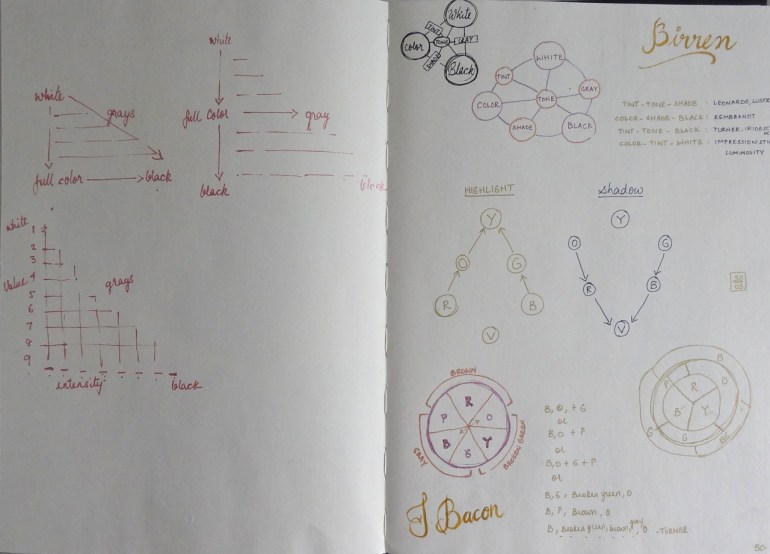 white
grays
full color
black
white
full color
gray
black
black
white
1
2
3
value 4
grays
5
6
7
8
9
intensity
black
White
TINT
GRAY
Color
TONE
SHADE
Black
Birren
WHITE
TINT
GRAY
COLOR
TONE
SHADE
BLACK
TINT - TONE - SHADE : LEONARDO,
COLOR - SHADE - BLACK : REMBRANDT
TINT - TONE - BLACK : TURNER,
COLOR - TINT - WHITE : IMPRESSIONISTIC
LUMINOSITY
HIGHLIGHT
Y
O
G
R
B
V
Shadow
Y
O
G
R
B
V
BROWN
R
P
O
B
Y
G
GRAY
BROKEN GREEN
B, O, + G
or
B, O + P
or
B, O + G + P
or
B, G, Broken green, O
B, P, Brown, O
B, Broken green, brown, gray, O - TURNER
B
P
R
O
B
Y
G
G
J Bacon